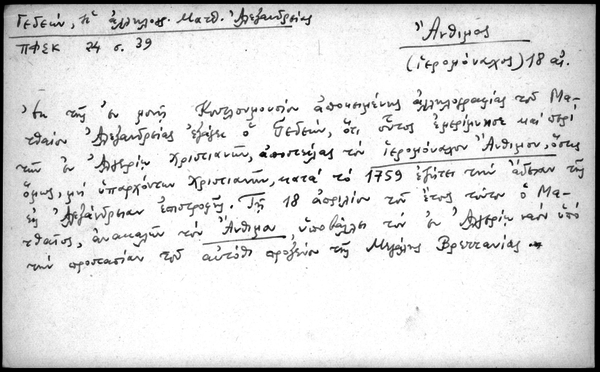 Γεδεών, Ἡ ἀλληλογρ. Ματθ. Ἀλεξανδρείας
ΠΦΣΚ 24 σ. 39
Ἄνθιμος
(ἱερομόναχος) 18 αἰ.
Ἐκ τῆς ἐν μονῇ Κουτλουμουσίου ἀποκειμένης ἀλληλογραφίας τοῦ Μα-
τθαίου Ἀλεξανδρείας ἐξάγει ὁ Γεδεών, ὅτι οὗτος ἐμερίμνησε καὶ περὶ
τῶν ἐν Ἀλγερίῳ Χριστιανῶν, ἀποστείλας τὸν ἱερομόναχον Ἄνθιμον, ὅστις
ὅμως, μὴ ὑπαρχόντων Χριστιανῶν, κατὰ τὸ 1759 ἐζήτει τὴν ἄδειαν τῆς
εἰς Ἀλεξάνδρειαν ἐπιστροφῆς. Τῇ 18 ἀπριλίου τοῦ ἔτους τούτου ὁ Μα-
τθαῖος, ἀνακαλῶν τὸν Ἄνθιμον ὑποβάλλει τὸν ἐν Ἀλγερίῳ ναὸν ὑπὸ
τὴν προστασίαν τοῦ αὐτόθι προξένου τῆς Μεγάλης Βρεττανίας.